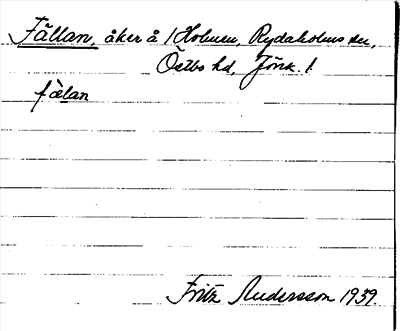 Fällan, åker å 1 Holmen, Rydaholms sn,
Östbo hd, Jönk. l.
fälan
Fritz Andersson 1939.